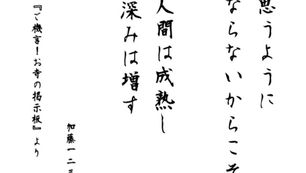 思うように
ならないからこそ
人間は成熟し
深みは増す
加藤一二三
『ご機言！お寺の掲示板』より